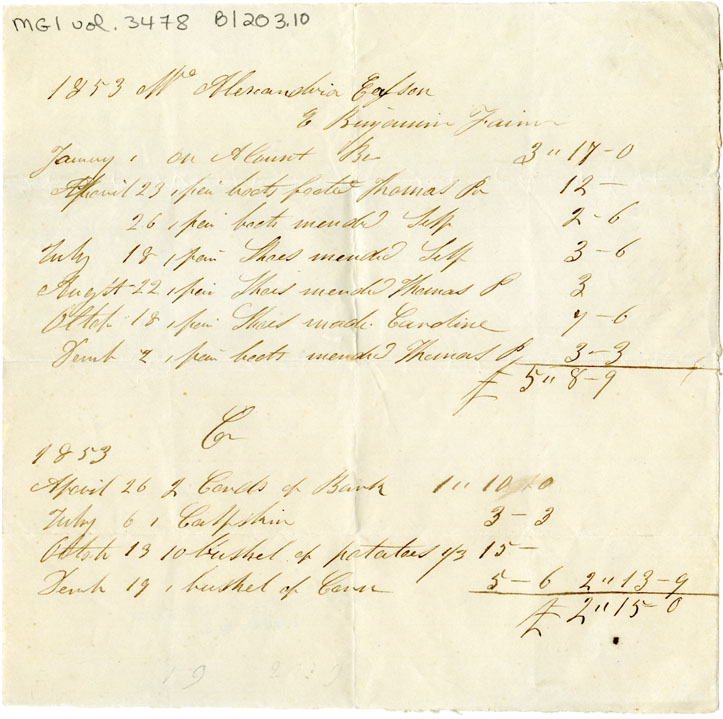 MG1 vol. 3478 B/203.10
1853 Mrs Alexandria Easson
Benjamin
January 1 on Acount Br 3 " 17 - 0
Apairil 23 1 pair boots footed Thomas P 12 -
26 1 pair boots mended Self 2 - 6
July 18 1 pair Shoes mended Self 3 - 6
Augst 22 1 pair Shoes mended Thomas P 3
Octob 18 1 pair Shoes made Caroline 7 - 6
Demb 2 1 pair boots mended Thomas P 3 - 3
£ 5 " 8 - 9
Cr
1853
Apairil 26 2 Cords of Bark 1 " 10 - 0
July 6 1 Calfskin 3 - 3
Octob 13 10 bushel of potatoes 15 -
Demb 19 1 bushel of Corn 5 - 6 2 " 13 - 9
£ 2 " 15 - 0